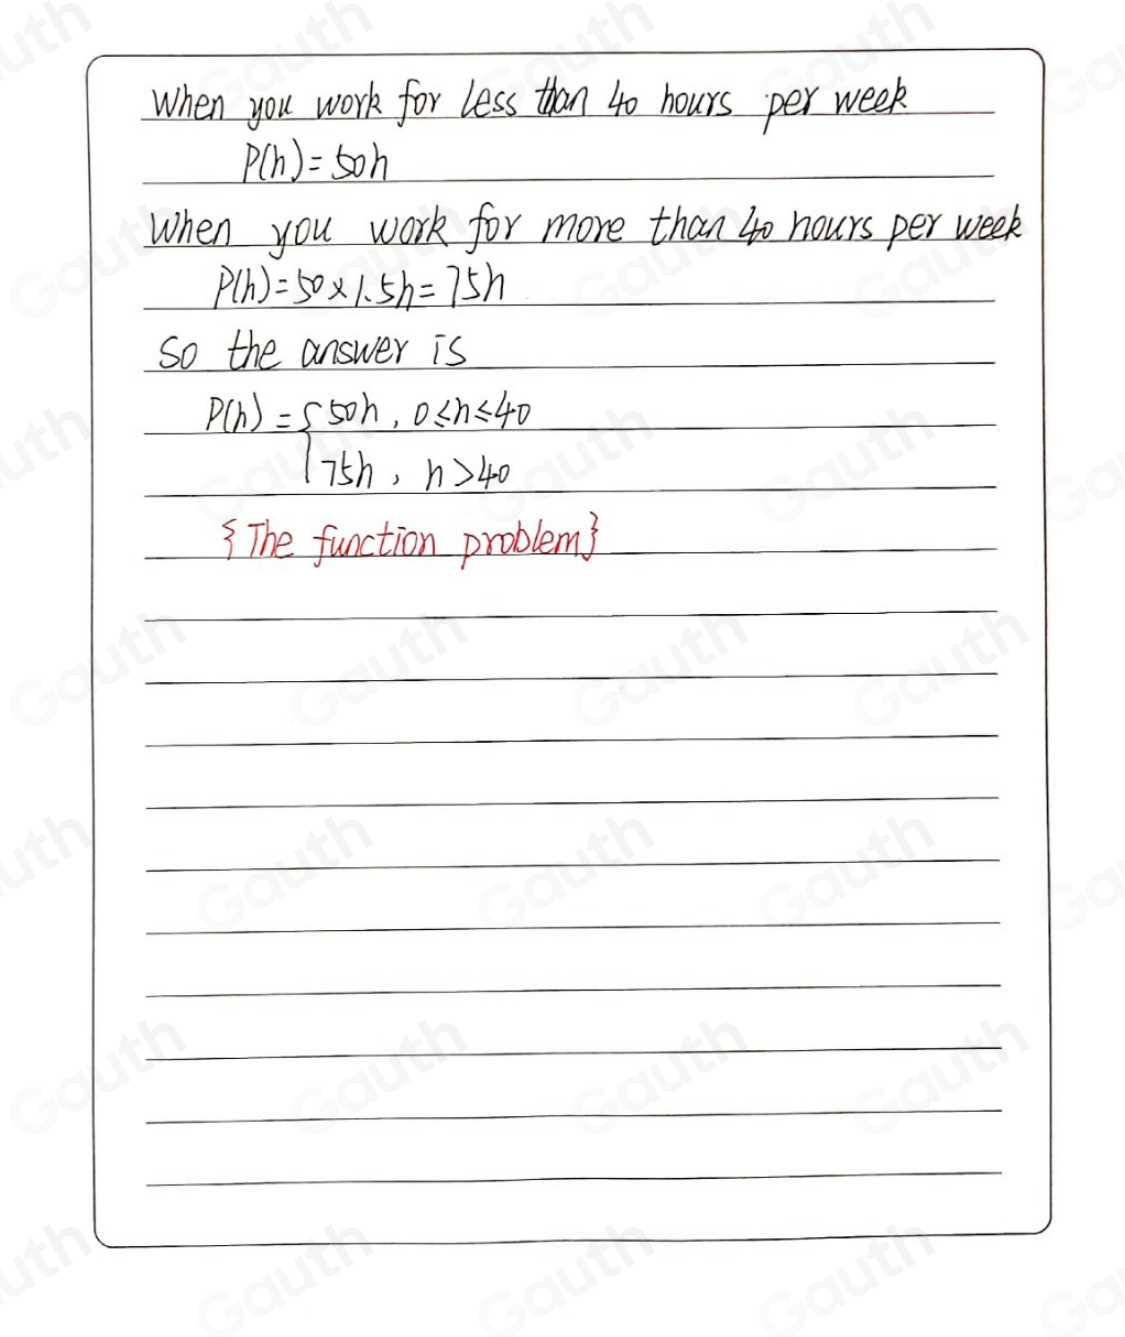 When you work for less than 40 hours per week
P(h)=50h
When you work for more than 40 hours per week
P(h)=50×1.5h=75h
so the answer is
P(h)={50h, 0≤h≤40
75h, h>40
{The function problem}